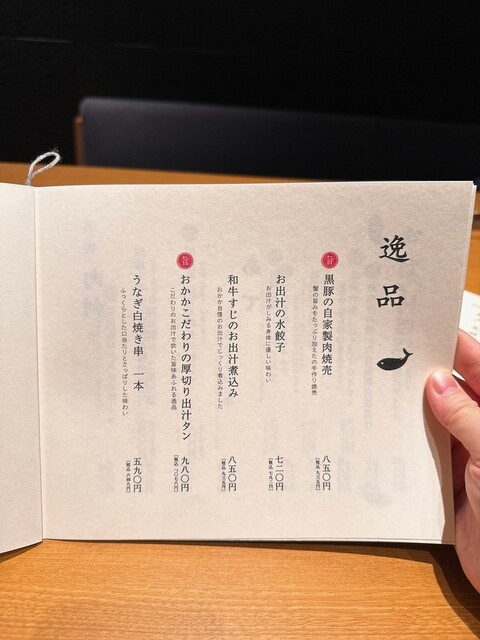 逸品
黒豚の自家製肉焼売
蟹の旨みをたっぷり加えたの手作り焼売
八五〇円
(税込 九三五円)
お出汁の水餃子
お出汁がしみる身体に優しい味わい
七二〇円
(税込 七九二円)
和牛すじのお出汁煮込み
おかか自慢のお出汁でじっくり煮込みました
八五〇円
(税込 九三五円)
おかかこだわりの厚切り出汁タン
こだわりのお出汁で炊いた旨味あふれる逸品
九八〇円
(税込 一〇七八円)
うなぎ白焼き串 一本
ふっくらとした口当たりとさっぱりした味わい
五九〇円
(税込 六四九円)